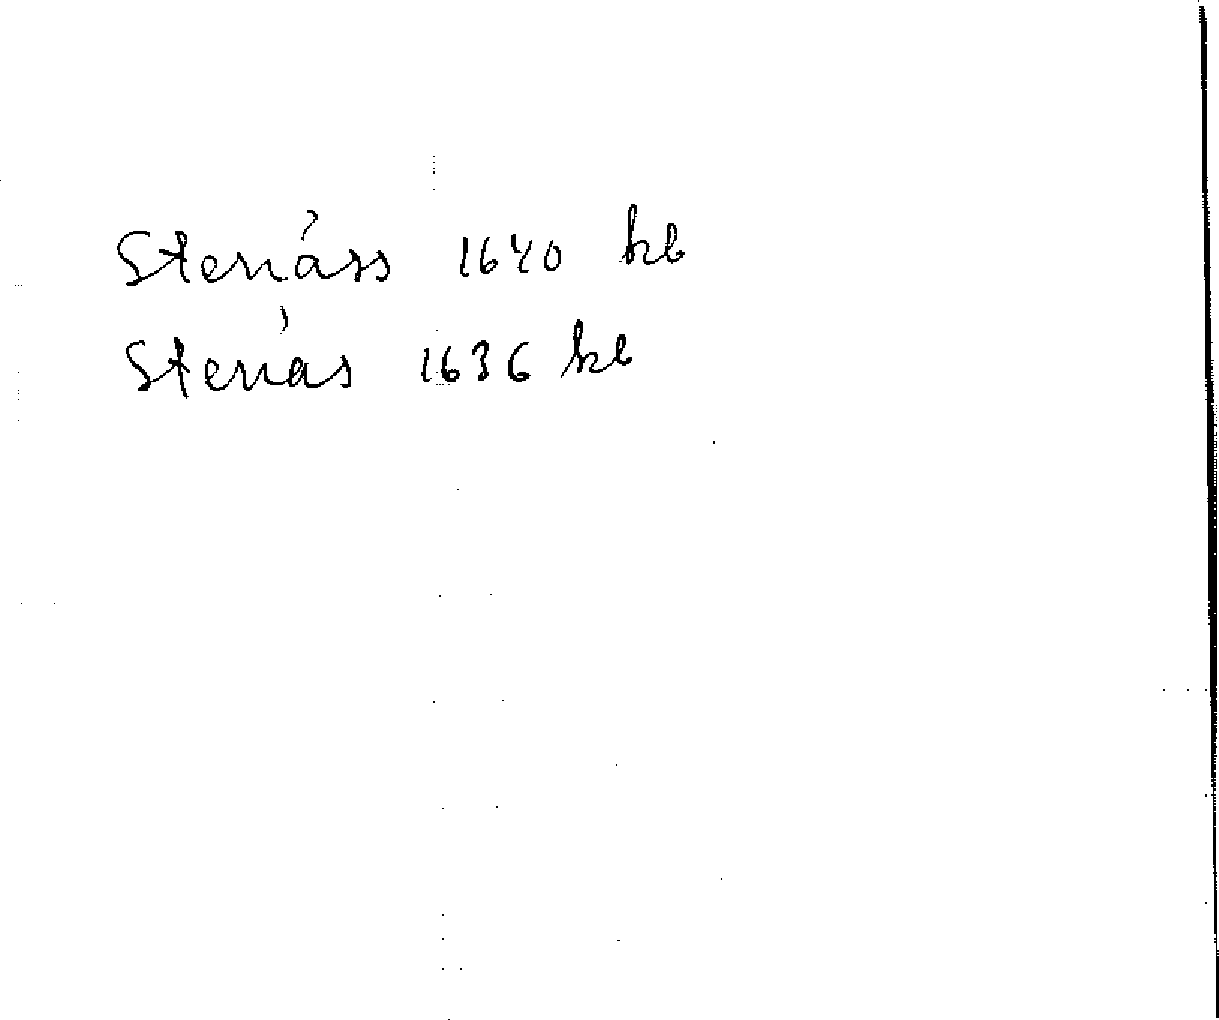 Stenåss 1640 kb
Stenås 1636 kb